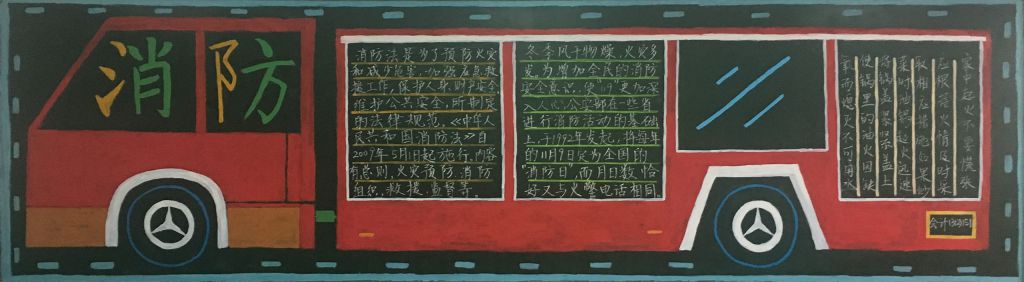 消防
消防法是为了预防火灾
和减少危害，加强应急救
援工作，保护人身、财产安全，
维护公共安全，所制定
的法律规范，《中华人
民共和国消防法》自
2009年5月1日起施行，内容
有总则，火灾预防，消防
组织，救援，监督等。
冬季风干物燥，火灾多
发，为增加全民的消防
安全意识，使
入人心，公安部在一些省
进行消防活动的基础
上，于1992年发起，将每年
的11月9日定为全国的
“消防日”，而月日数恰
好又与火警电话相同。
家中起火不要慌张
应根据火情及时采
取相应措施如果炒
菜时油锅起火迅速
将锅盖紧紧盖上
使锅里的油火因缺
氧而熄灭不可用水
会计